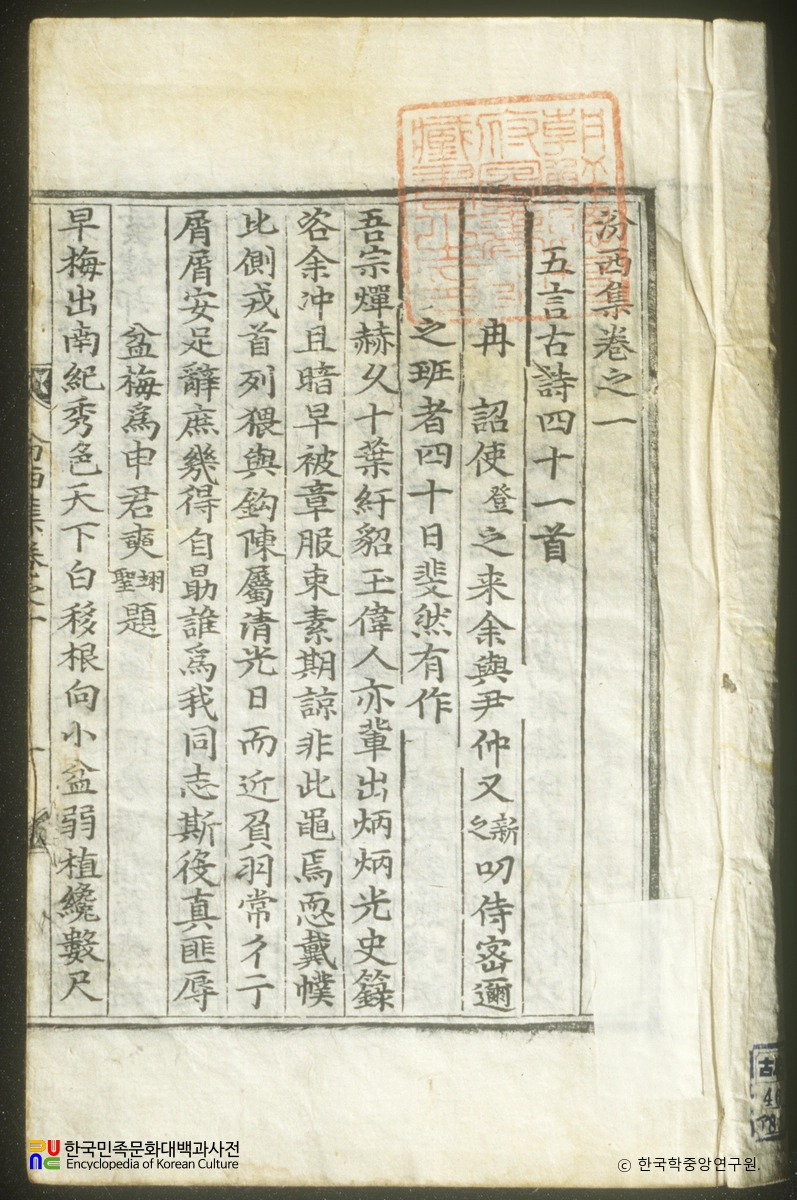 汾西集卷之一
五言古詩四十一首
冉 詔使登之来余與尹仲又新之叨侍密邇
之班者四十日斐然有作
吾宗燀赫久十葉紆貂玉偉人亦輩出炳炳光史籙
咨余沖且暗早被章服束素期諒非此黽焉恧戴幞
比側戎首列猥與鈎陳屬清光日而近負羽常彳亍
屑屑安足辭庶幾得自勗誰爲我同志斯役真匪辱
盆梅爲申君奭翊聖題
早梅出南紀秀色天下白移根向小盆弱植纔數尺
한국민족문화대백과사전
Encyclopedia of Korean Culture
ⓒ 한국학중앙연구원.